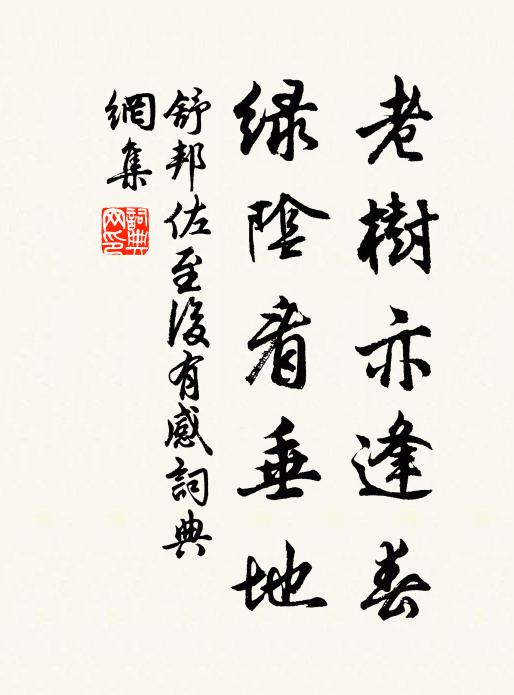 老樹亦逢春
绿陰看垂地
舒邦佐至後有感詞典
網集
詞典网印